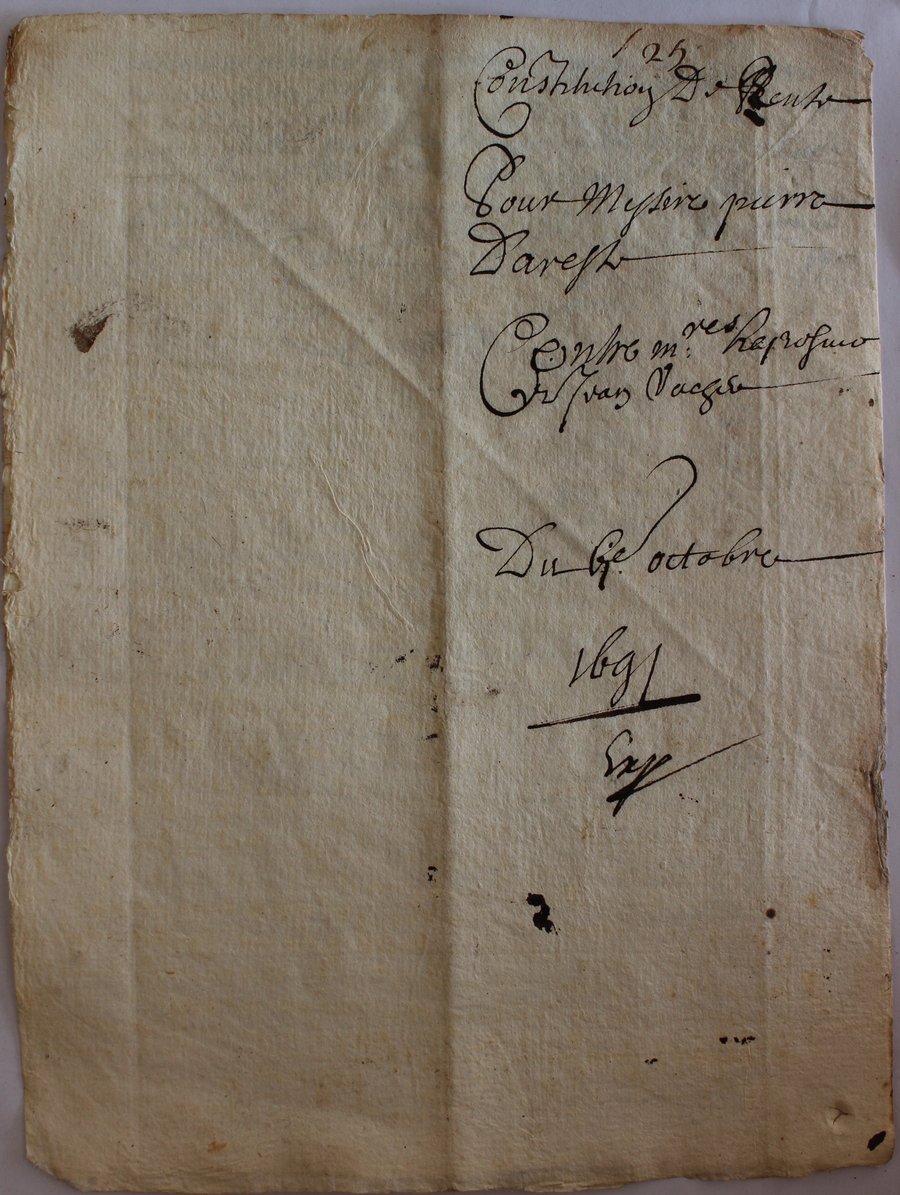 125
Constitution De Rente
Pour Messire pierre
Dareste
Contre m.res
et Jean Vacher
Du 6e. octobre
1691
Exp